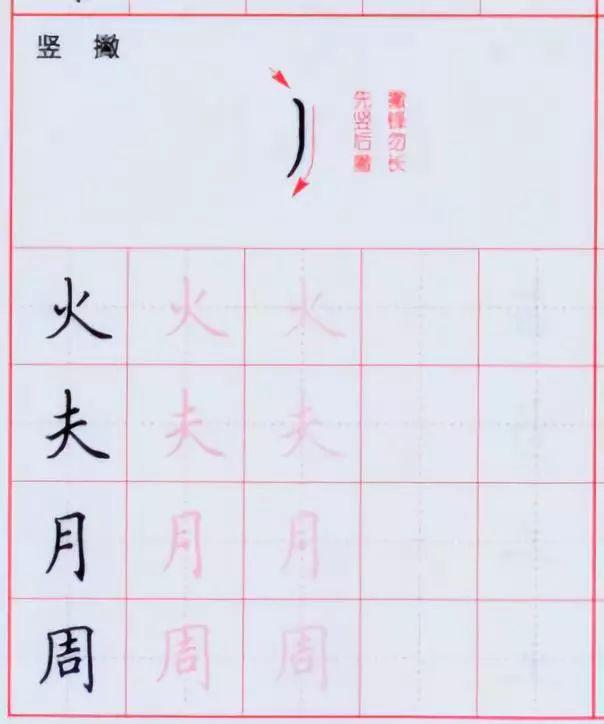 竖 撇
先竖后撇
撇锋勿长
火 火 火
夫 夫 夫
月 月 月
周 周 周